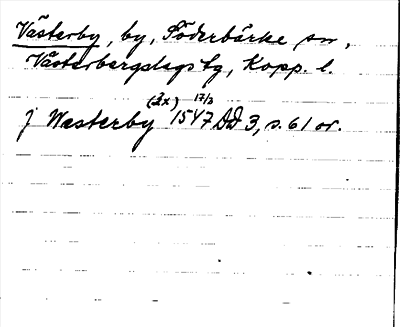 Västerby, by, Söderbärke sn,
Västerbergslags tg, Kopp. l.
(2x) 17/3
j Wæsterby 1547 DD 3, s. 61 or.